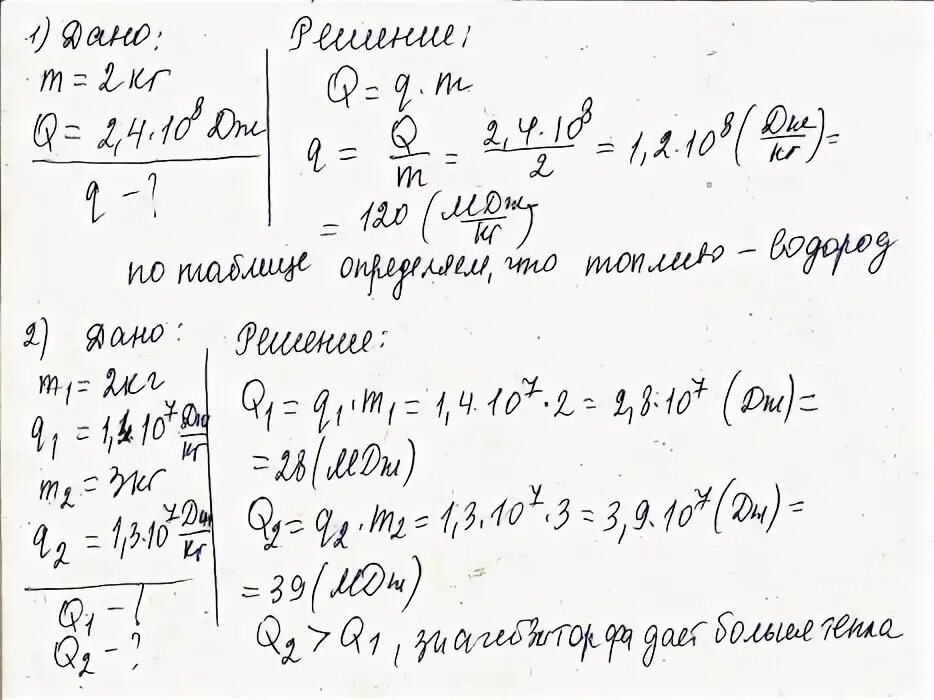 1) Дано:
m = 2 кг
Q = 2,4·10⁸ Дж
q – ?
Решение:
Q = q·m
q = Q/m = 2,4·10⁸/2 = 1,2·10⁸ (Дж/кг) =
= 120 (МДж/кг)
по таблице определяем, что топливо – водород
2) Дано:
m₁ = 2кг
q₁ = 1,4·10⁷ Дж/кг
m₂ = 3кг
q₂ = 1,3·10⁷ Дж/кг
Q₁ – ?
Q₂ – ?
Решение:
Q₁ = q₁·m₁ = 1,4·10⁷·2 = 2,8·10⁷ (Дж) =
= 28 (МДж)
Q₂ = q₂·m₂ = 1,3·10⁷·3 = 3,9·10⁷ (Дж) =
= 39 (МДж)
Q₂ > Q₁, дает больше тепла